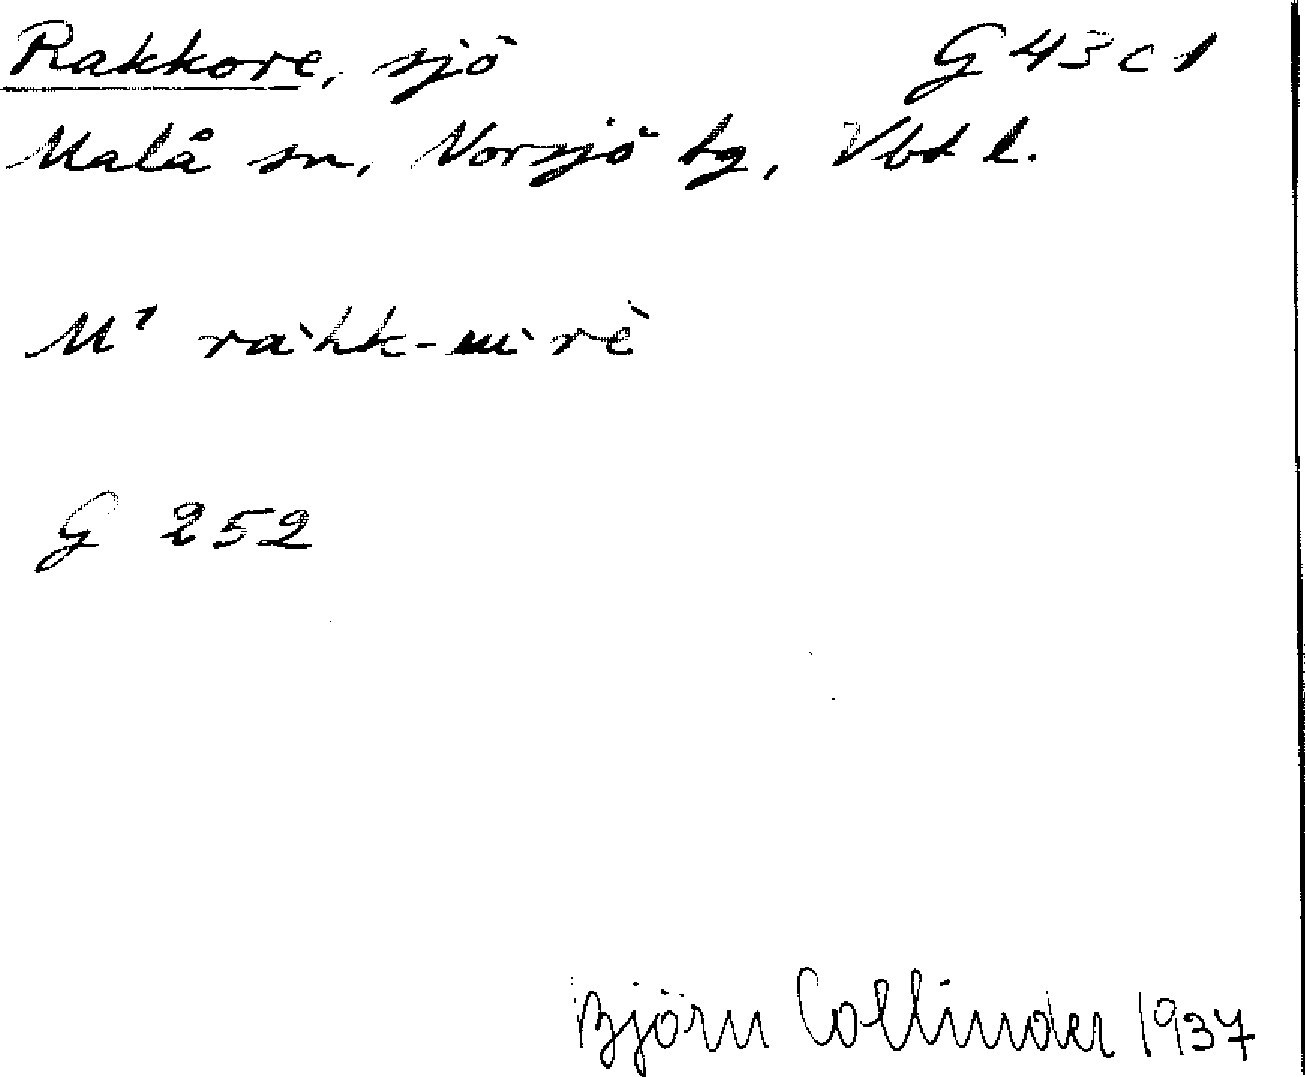 Rakkore, sjö G 43 c 1
Malå sn, Norsjö tg, Vbt l.
M¹
G 252
Björn Collinder 1937